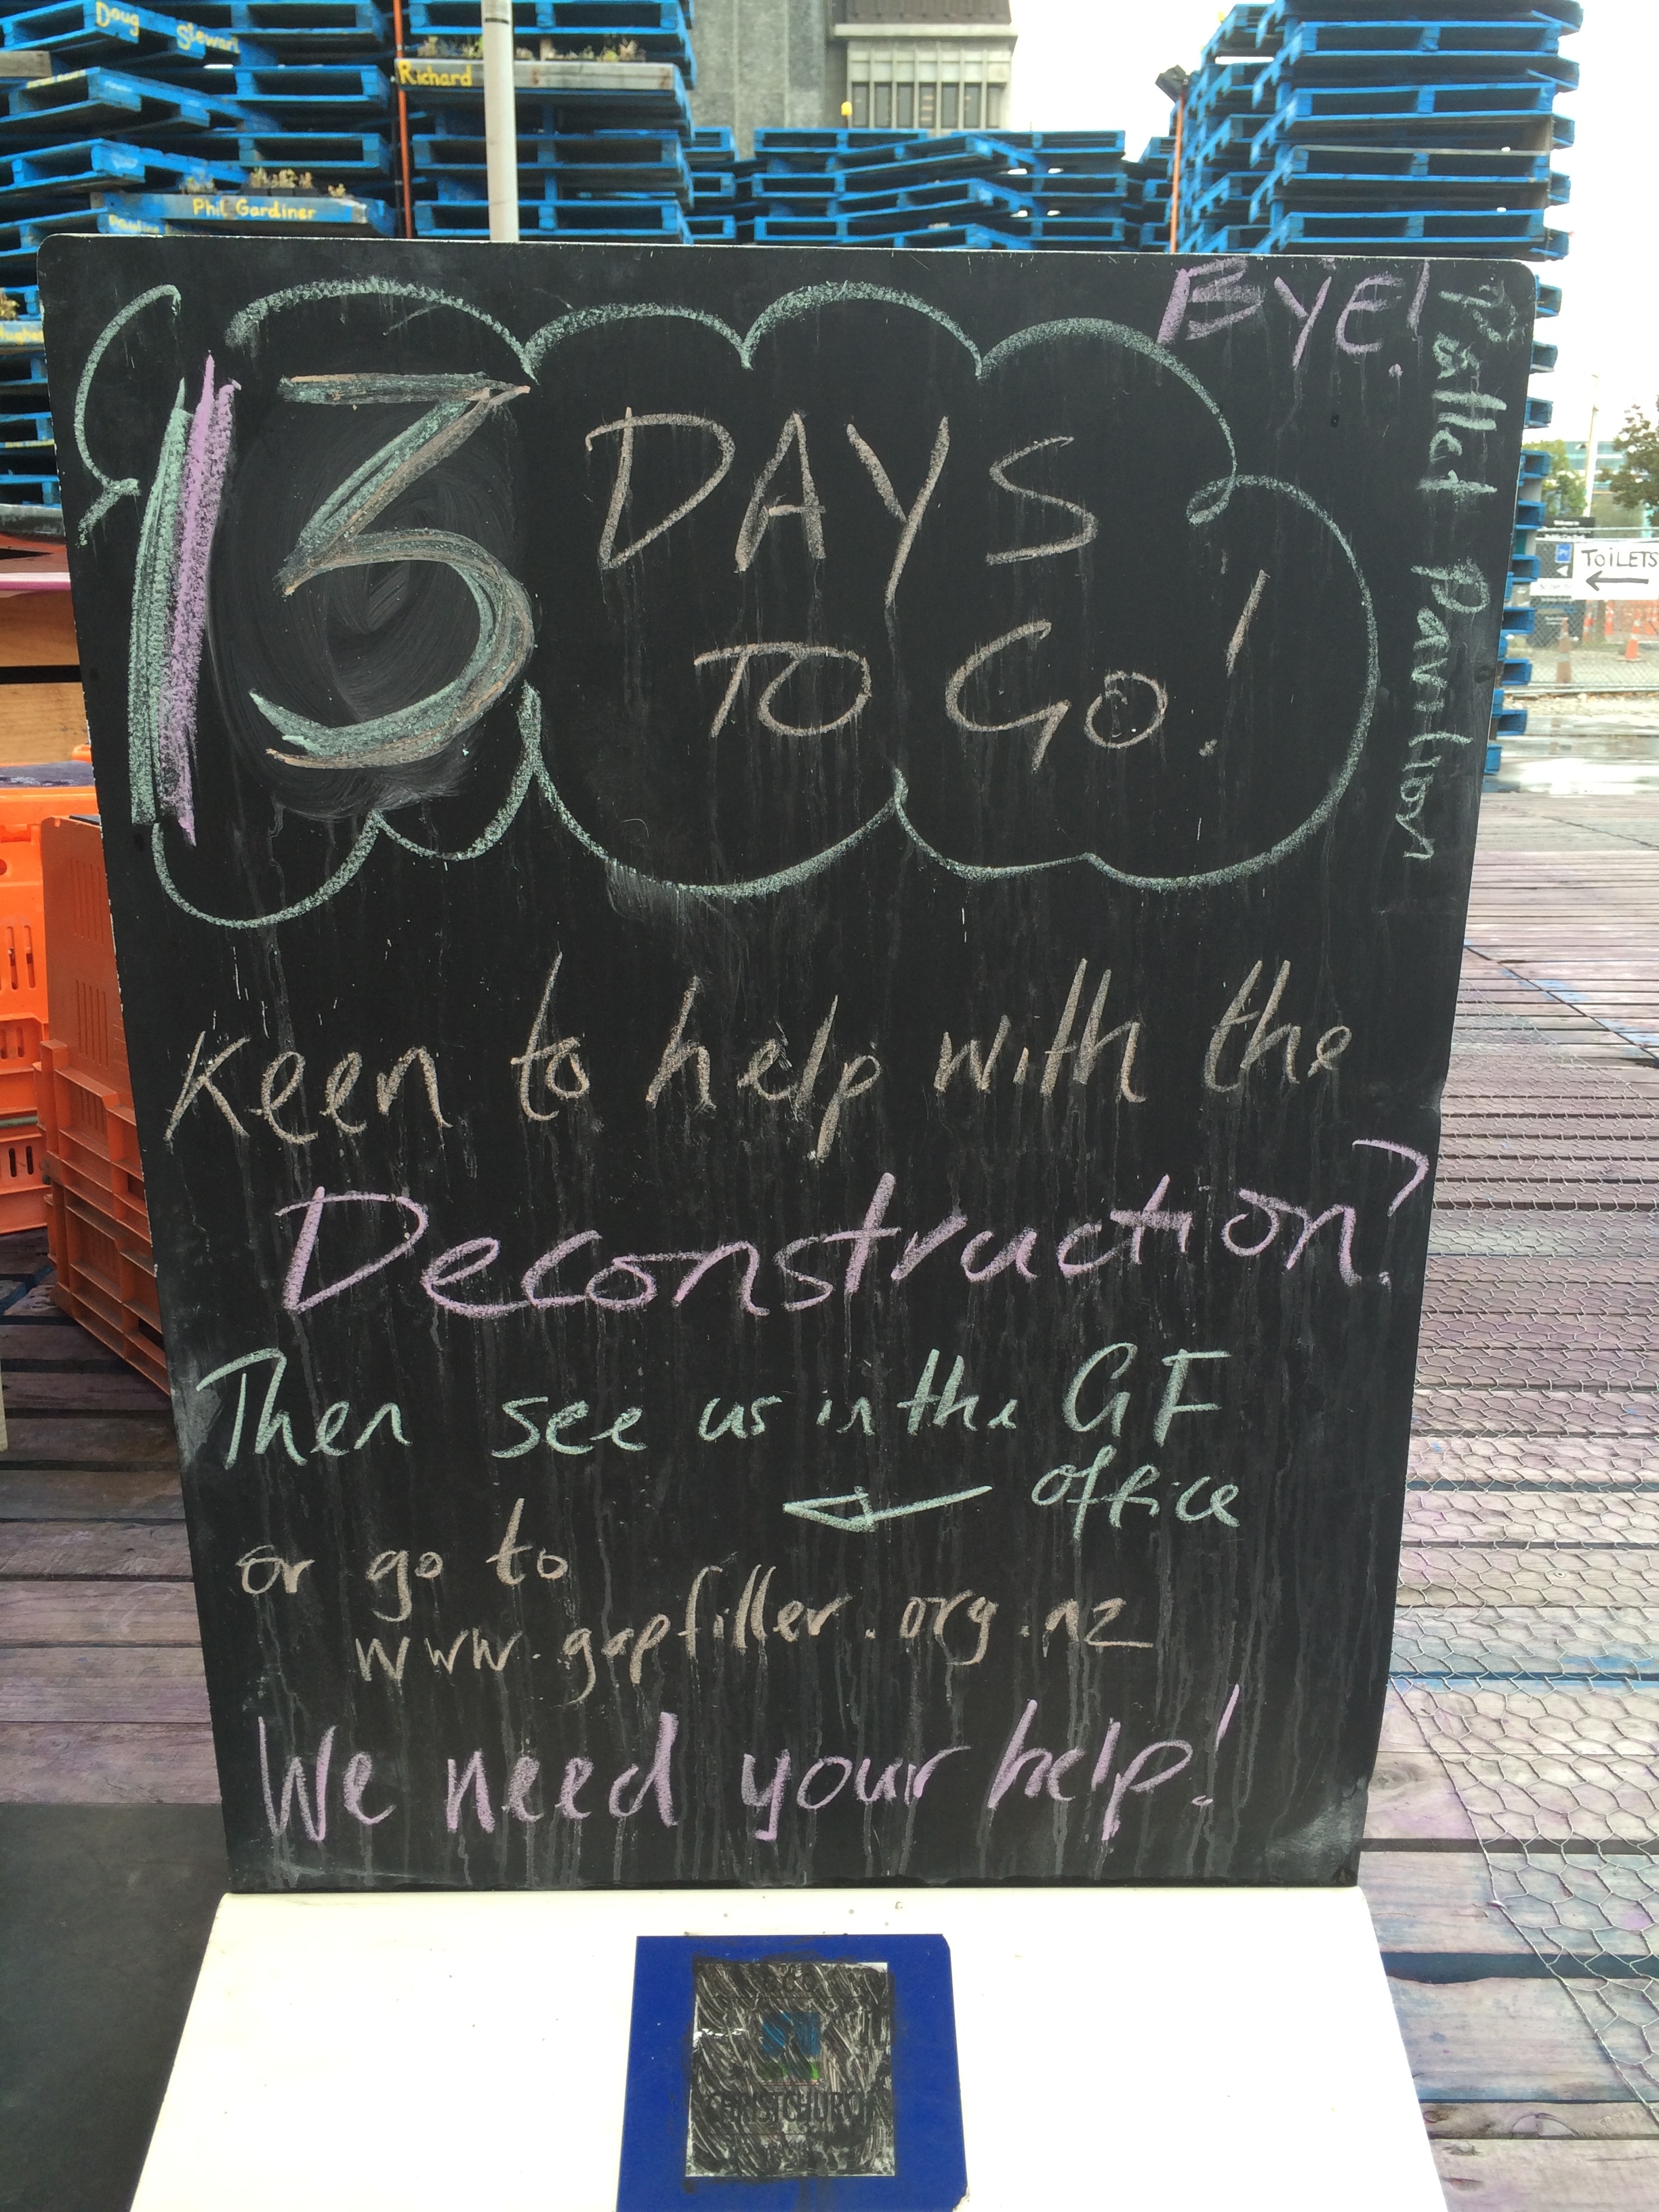 Doug Stewart
Richard
Phil Gardiner
BYE!
Pallet Pavilion
13 DAYS
TO GO!
TOILETS
Keen to help with the
Deconstruction?
Then see us in the GF
office
or go to
www.gapfiller.org.nz
We need your help!
CHRISTCHURCH